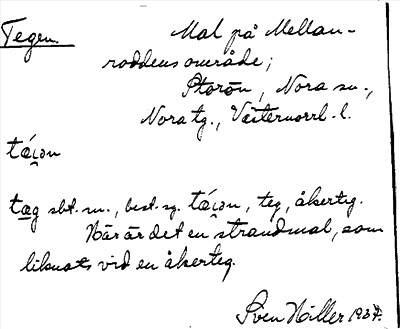 Tegen. Mal på Mellan-
roddens område;
Storön, Nora sn.,
Nora tg., Västernorrl. l.
tǽi̯ən
tæg sbt. m., best. sg. tǽi̯ən, teg, åkerteg.
Här är det en strandmal, som
liknats vid en åkerteg.
Sven Höller 1937.